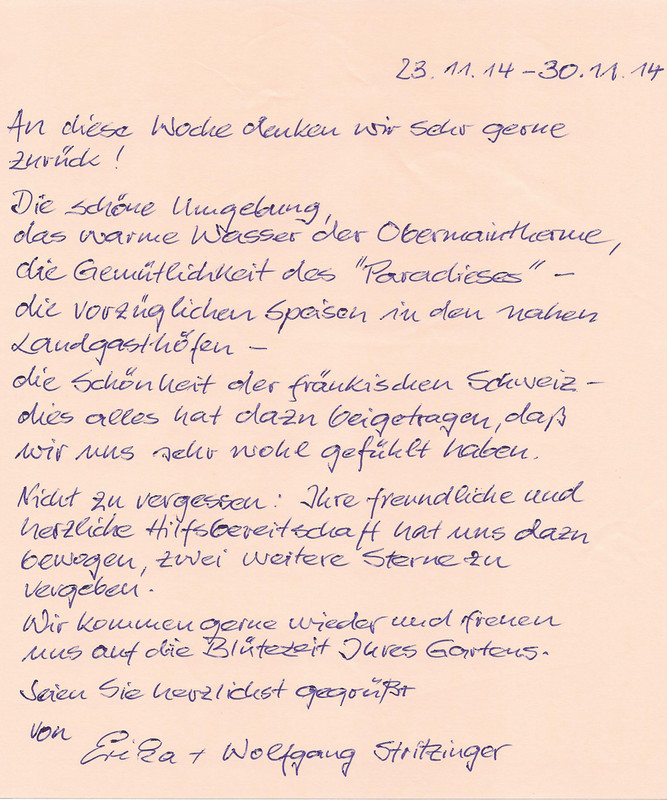 23.11.14 – 30.11.14
An diese Woche denken wir sehr gerne
zurück!
Die schöne Umgebung,
das warme Wasser der Obermaintherme,
die Gemütlichkeit des "Paradieses" –
die vorzüglichen Speisen in den nahen
Landgasthöfen –
die Schönheit der fränkischen Schweiz –
dies alles hat dazu beigetragen, daß
wir uns sehr wohl gefühlt haben.
Nicht zu vergessen: Ihre freundliche und
herzliche Hilfsbereitschaft hat uns dazu
bewogen, zwei weitere Sterne zu
vergeben.
Wir kommen gerne wieder und freuen
uns auf die Blütezeit Ihres Gartens.
Seien Sie herzlichst gegrüßt
von
Erika + Wolfgang Stritzinger